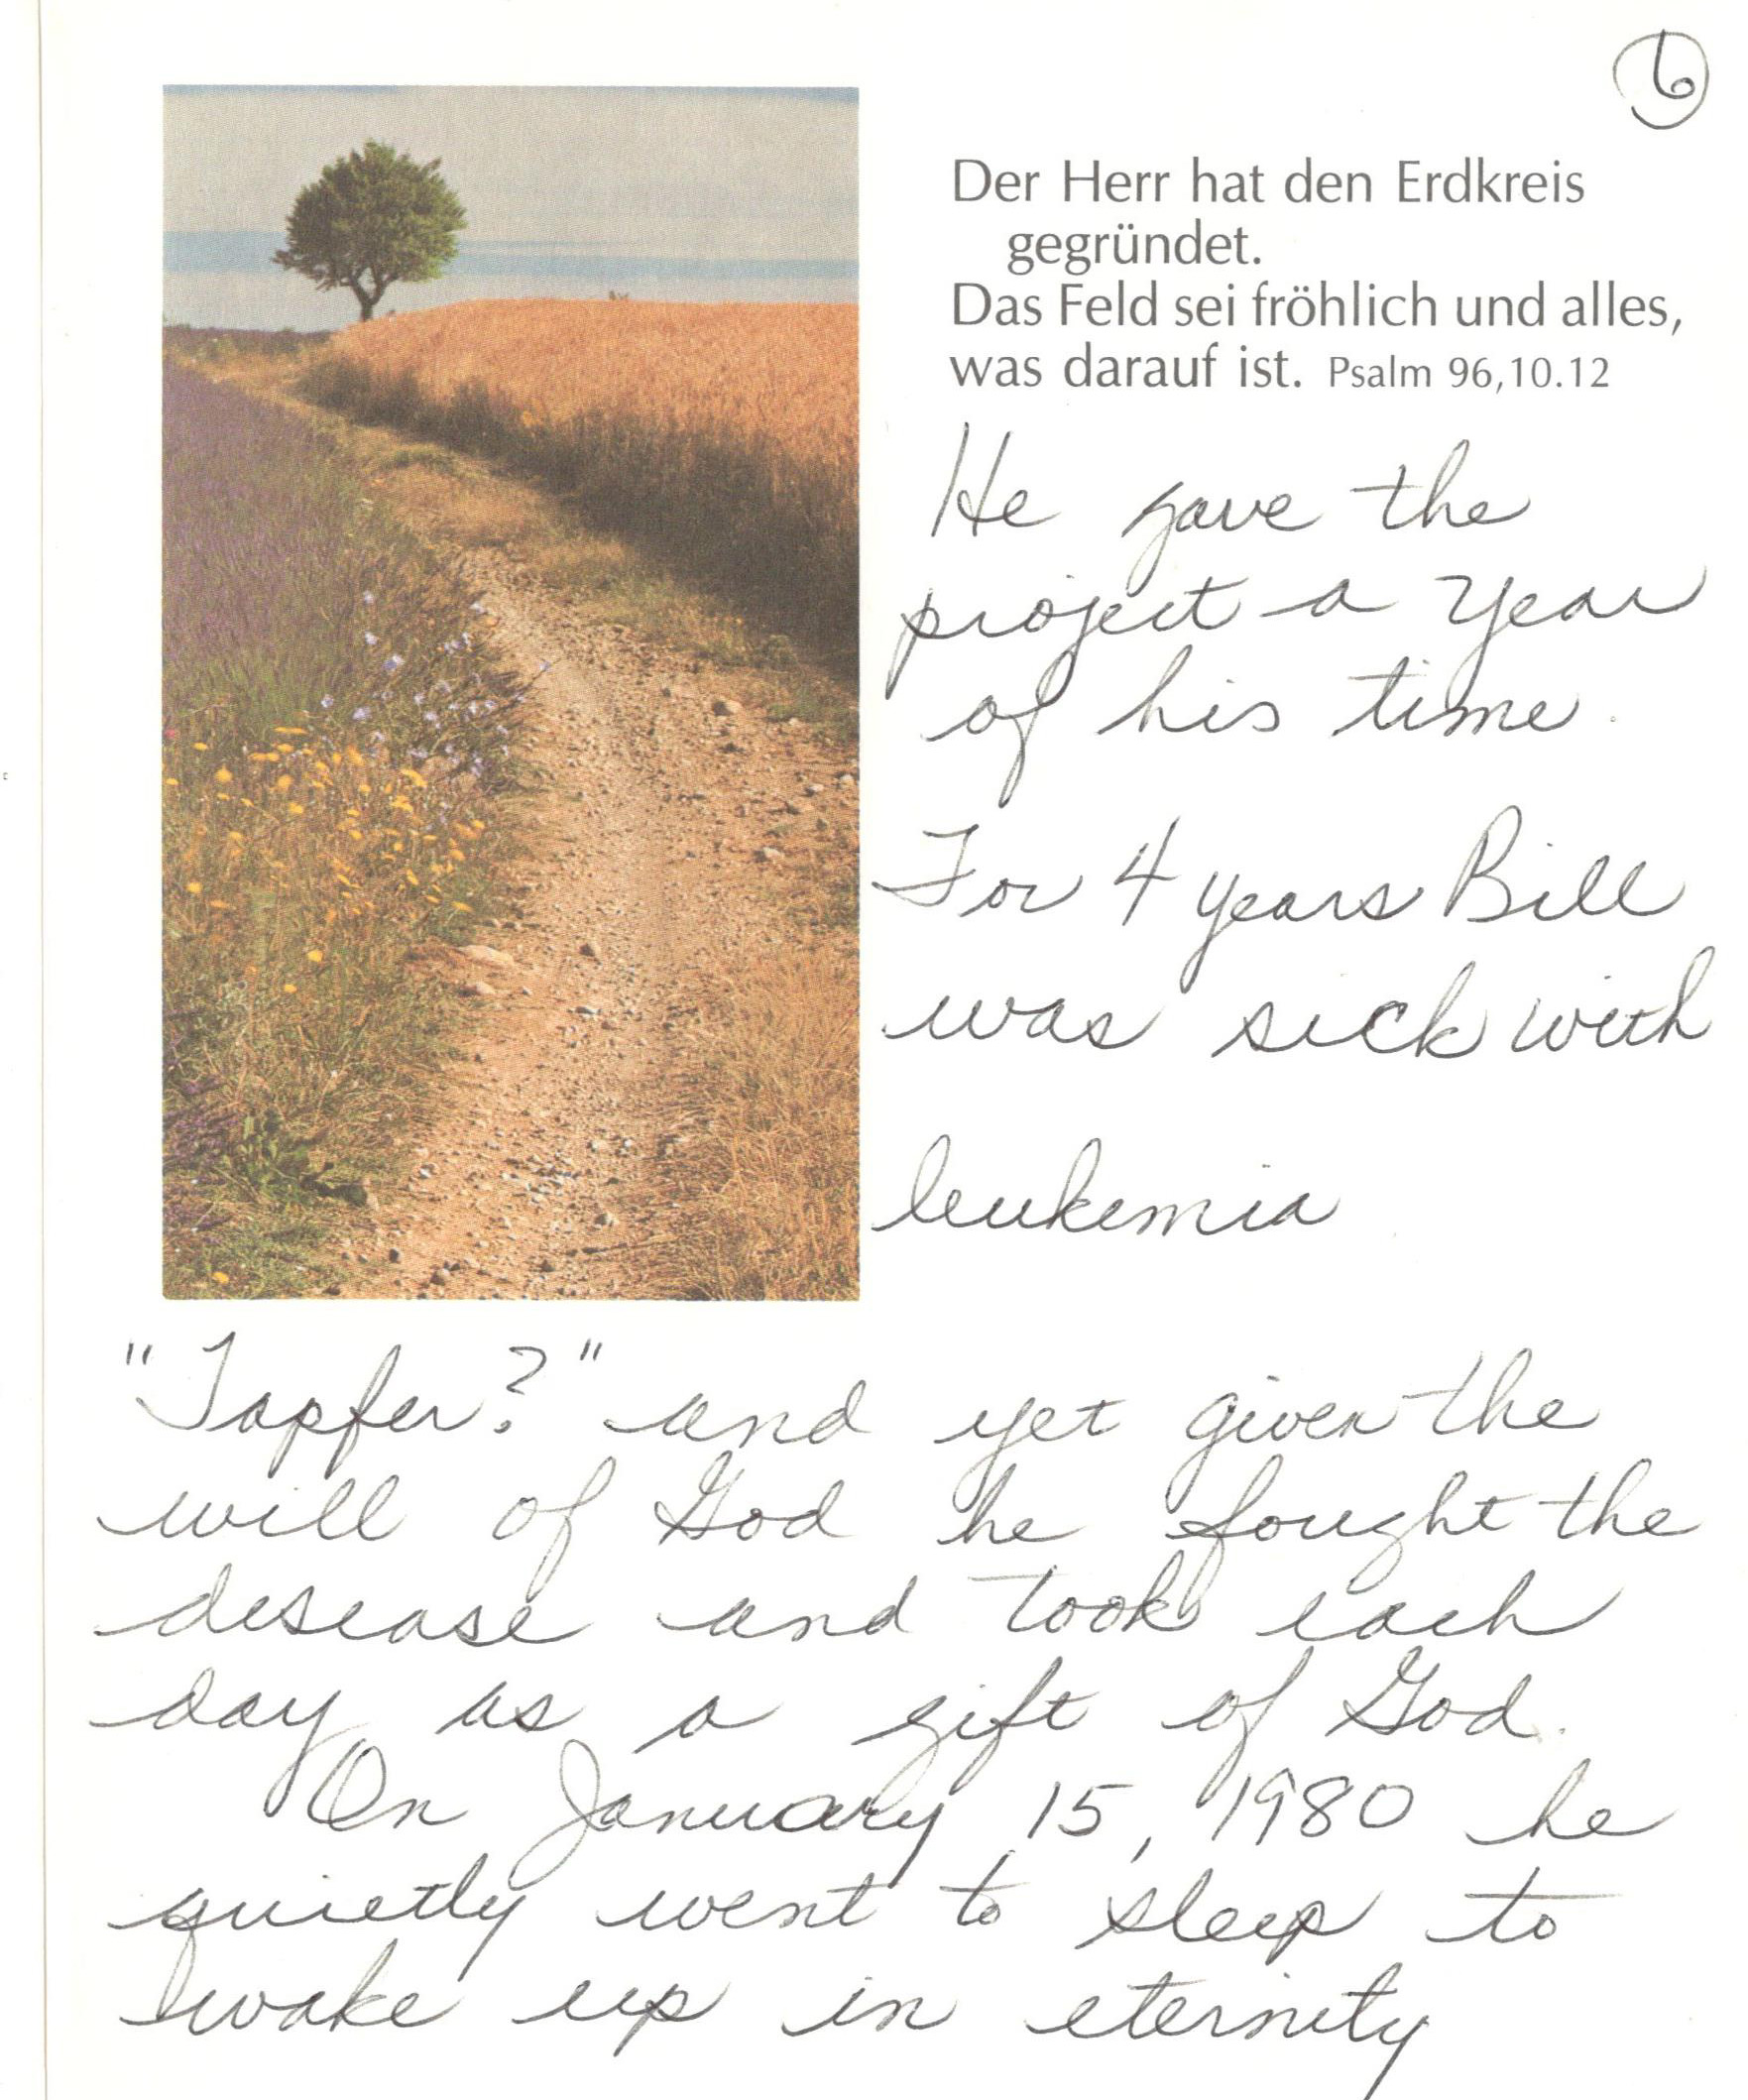 6
Der Herr hat den Erdkreis
gegründet.
Das Feld sei fröhlich und alles,
was darauf ist. Psalm 96,10.12
He gave the
project a year
of his time.
For 4 years Bill
was sick with
leukemia
"Tapfer?" and yet given the
will of God he fought the
disease and took each
day as a gift of God.
On January 15, 1980 he
quietly went to sleep to
wake up in eternity